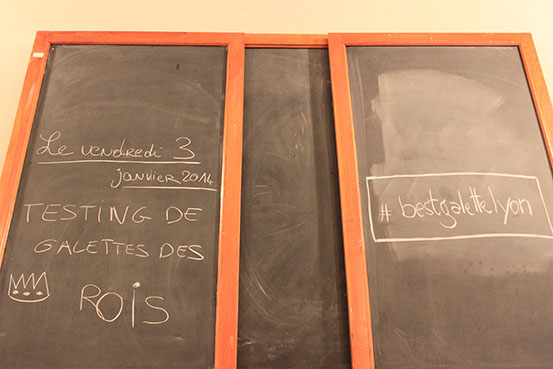 Le vendredi 3
janvier 2014
TESTING DE
GALETTES DES
ROIS
#bestgalettelyon